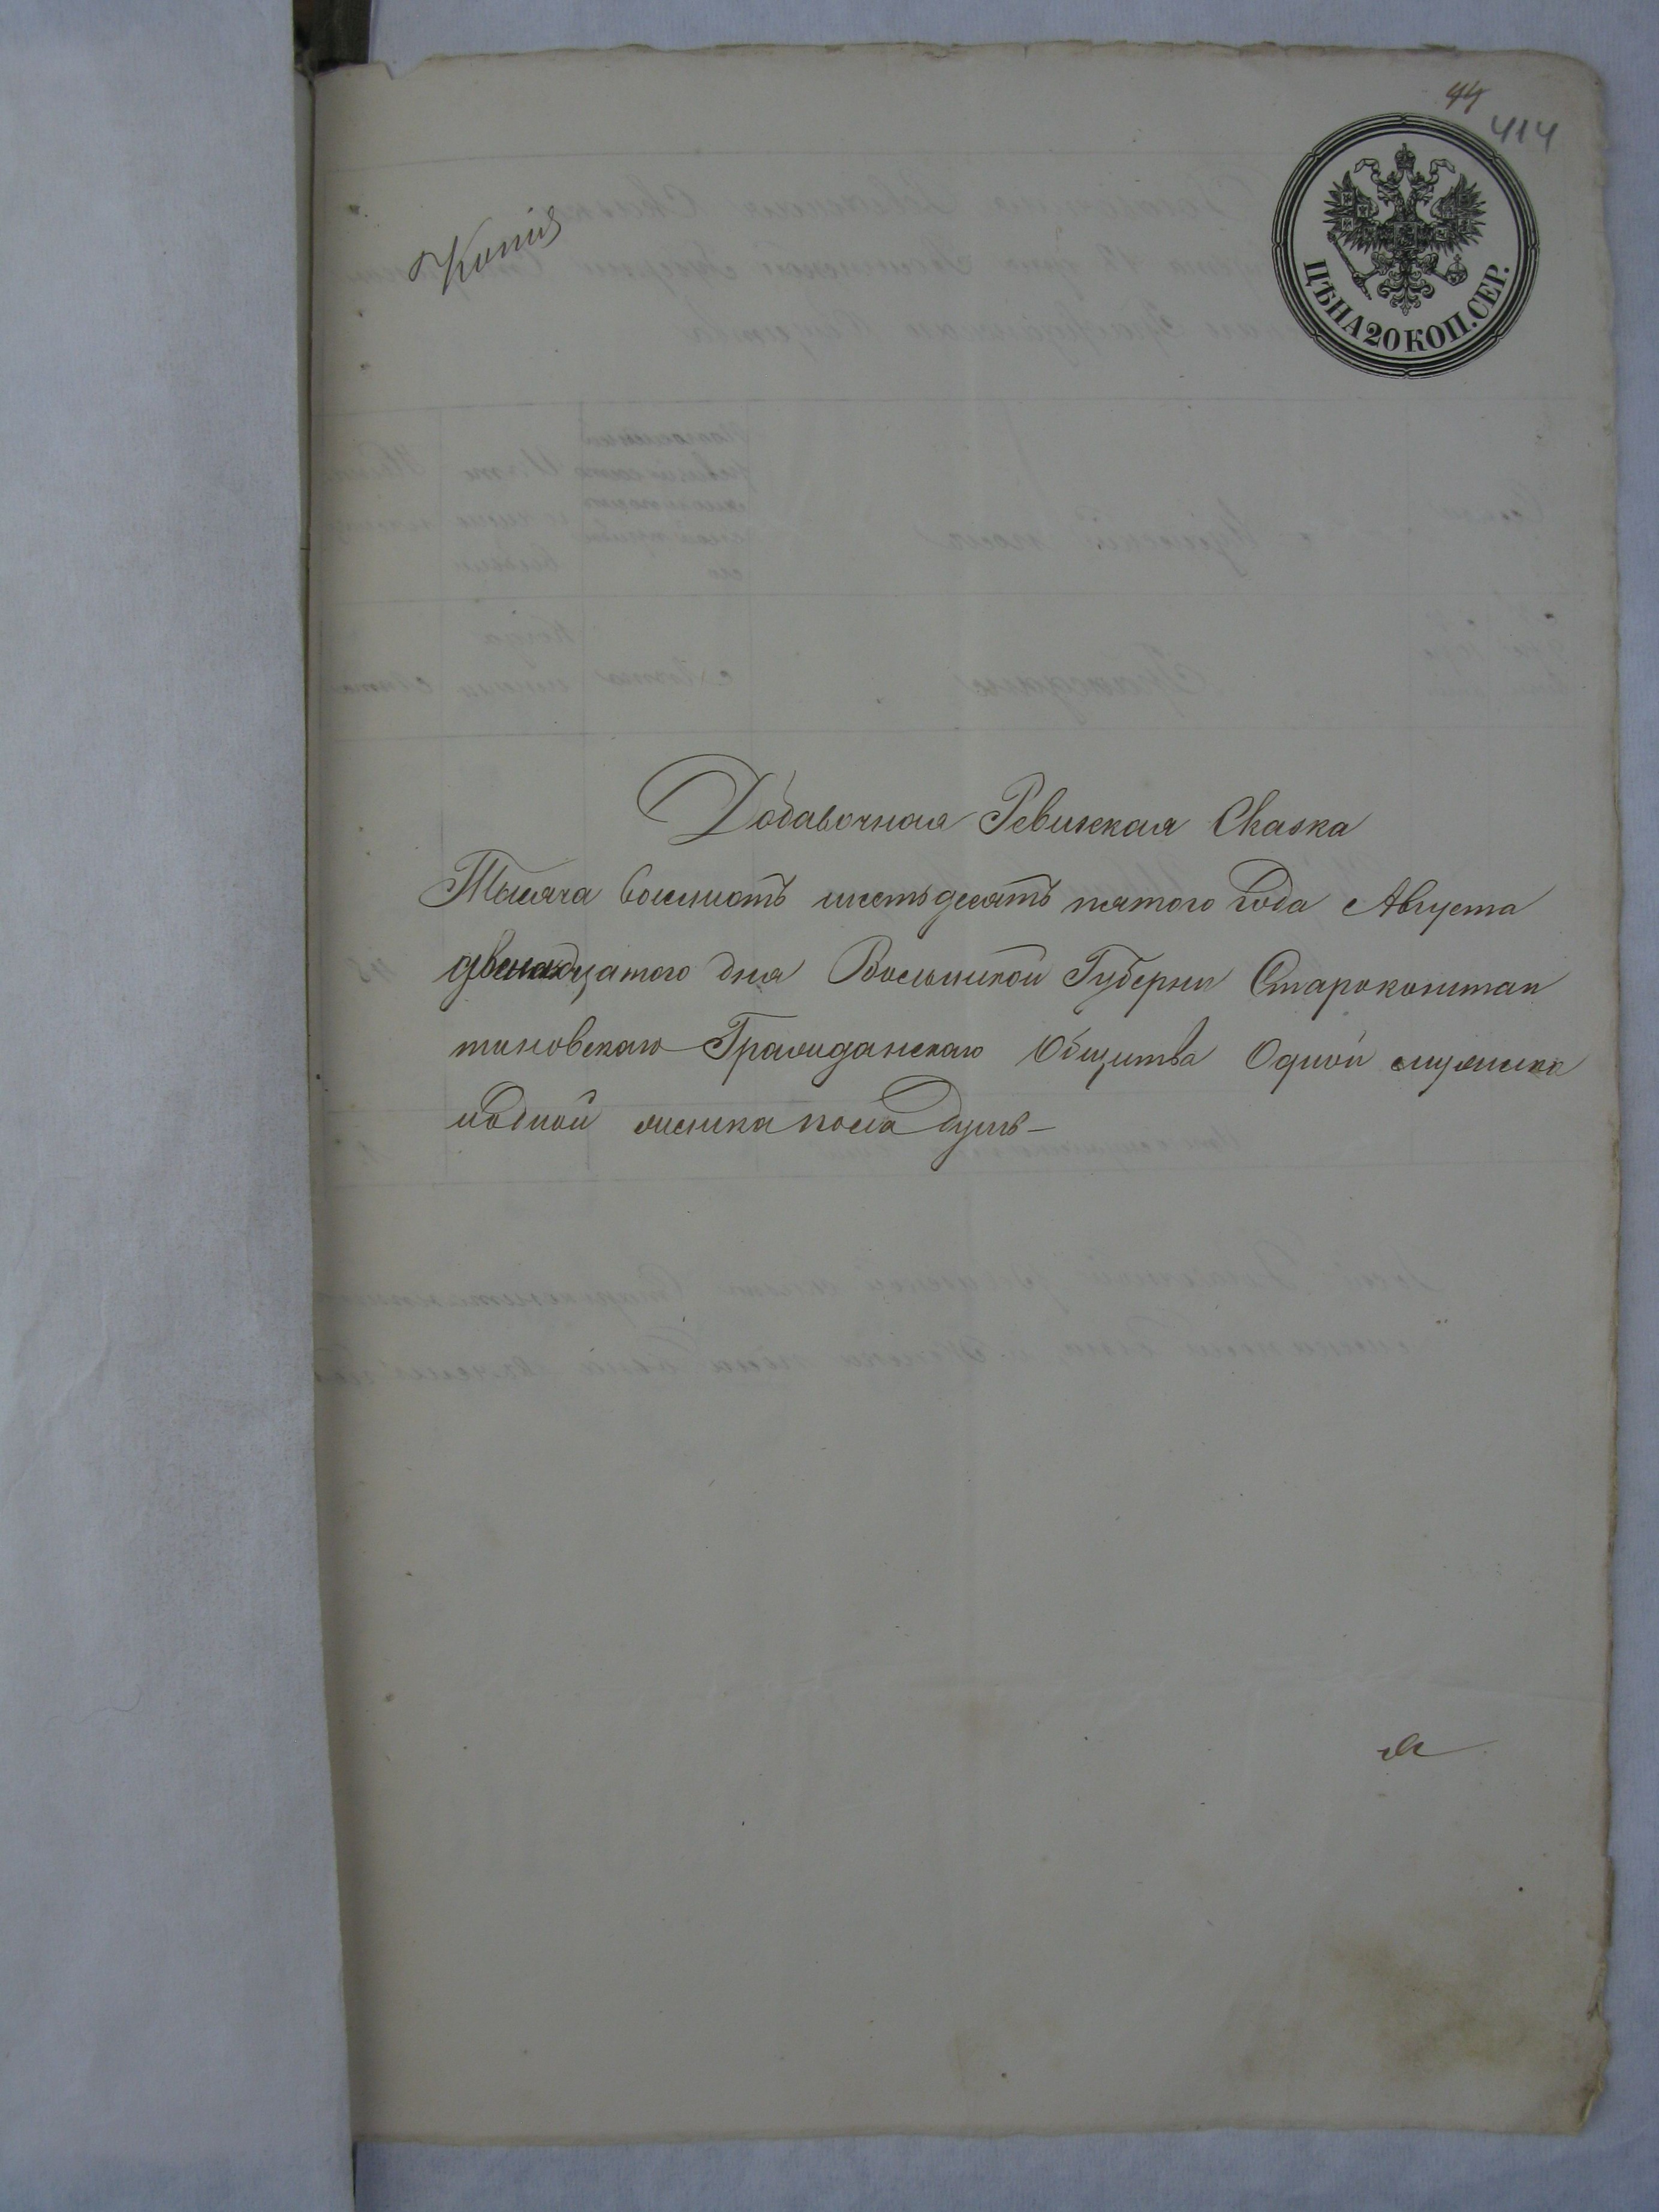 44
414
Копія
ЦѢНА 20 КОП. СЕР.
Добавочная Ревизская Сказка
Тысяча восемьсотъ шестьдесятъ пятого Года Августа
двенадцатого дня Волынской Губерніи Староконстан
тиновскаго Гражданскаго Общества Одной мужеска
и одной женска пола Душъ—